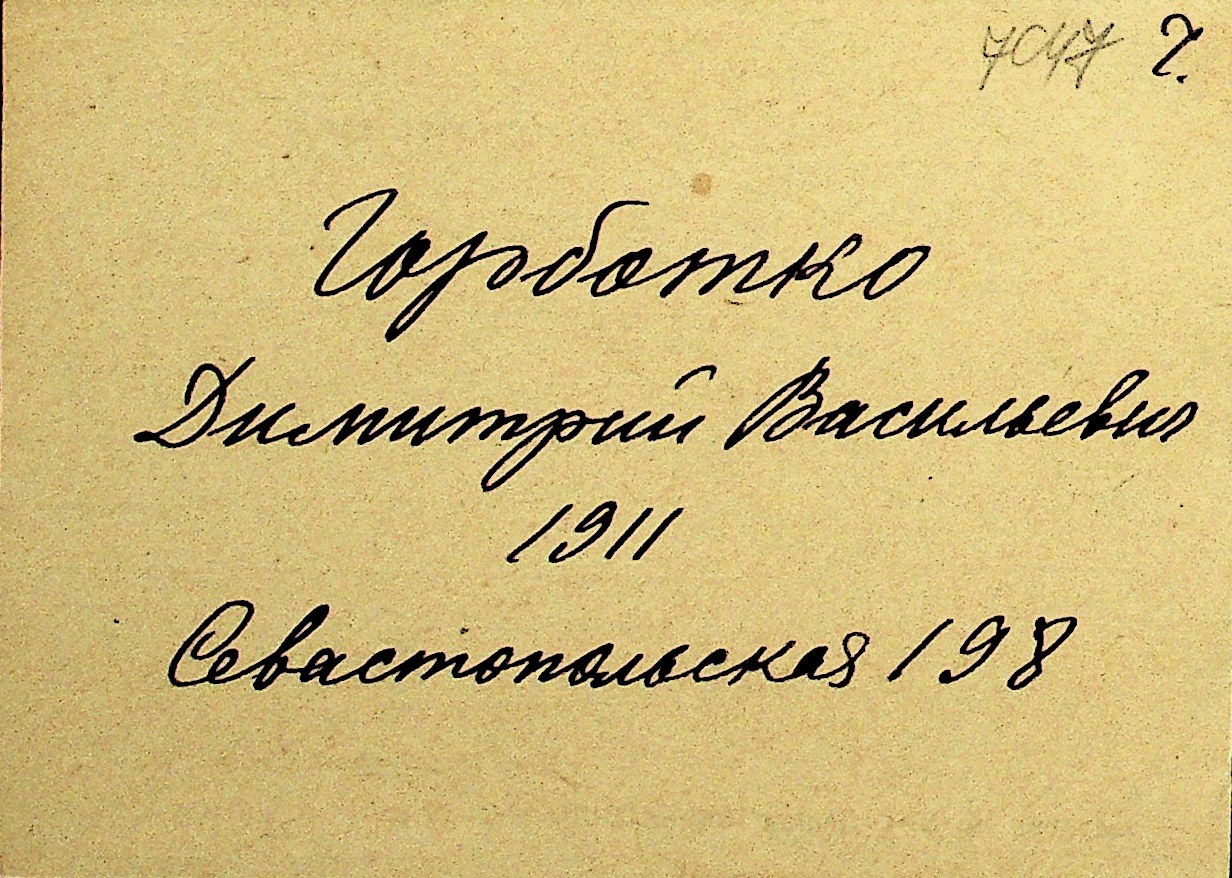 7047 2.
Горботко
Димитрий Васильевич
1911
Севастопольская 198